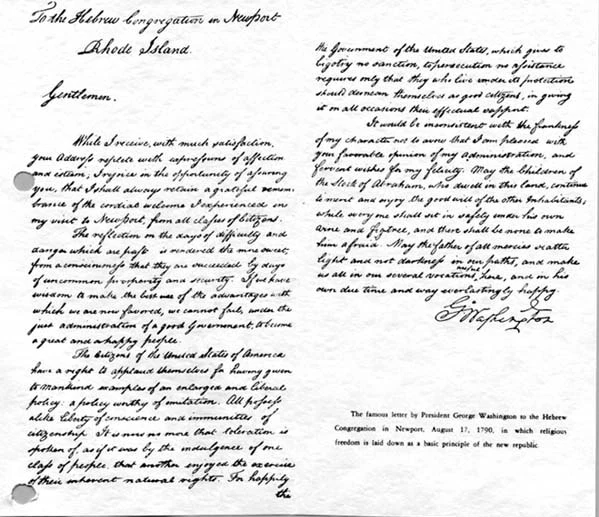 To the Hebrew Congregation in Newport
Rhode Island.
Gentlemen.
While I receive, with much satisfaction,
your Address replete with expressions of affection
and esteem; I rejoice in the opportunity of assuring
you, that I shall always retain a grateful remem-
brance of the cordial welcome I experienced in
my visit to Newport, from all classes of Citizens.
The reflection on the days of difficulty and
danger which are past is rendered the more sweet,
from a consciousness that they are succeeded by days
of uncommon prosperity and security. If we have
wisdom to make the best use of the advantages with
which we are now favored, we cannot fail, under the
just administration of a good Government, to become
a great and a happy people.
The Citizens of the United States of America
have a right to applaud themselves for having given
to mankind examples of an enlarged and liberal
policy: a policy worthy of imitation. All possess
alike liberty of conscience and immunities of
citizenship It is now no more that toleration is
spoken of, as if it was by the indulgence of one
class of people, that another enjoyed the exercise
of their inherent natural rights. For happily
the
the Government of the United States, which gives to
bigotry no sanction, to persecution no assistance
requires only that they who live under its protection
should demean themselves as good citizens, in giving
it on all occasions their effectual support.
It would be inconsistent with the frankness
of my character not to avow that I am pleased with
your favorable opinion of my Administration, and
fervent wishes for my felicity. May the Children of
the Stock of Abraham, who dwell in this land, continue
to merit and enjoy the good will of the other Inhabitants,
while every one shall sit in safety under his own
vine and figtree, and there shall be none to make
him afraid. May the father of all mercies scatter
light and not darkness in our paths, and make
us all in our several vocations useful here, and in his
own due time and way everlastingly happy.
G. Washington
The famous letter by President George Washington to the Hebrew
Congregation in Newport, August 17, 1790, in which religious
freedom is laid down as a basic principle of the new republic.